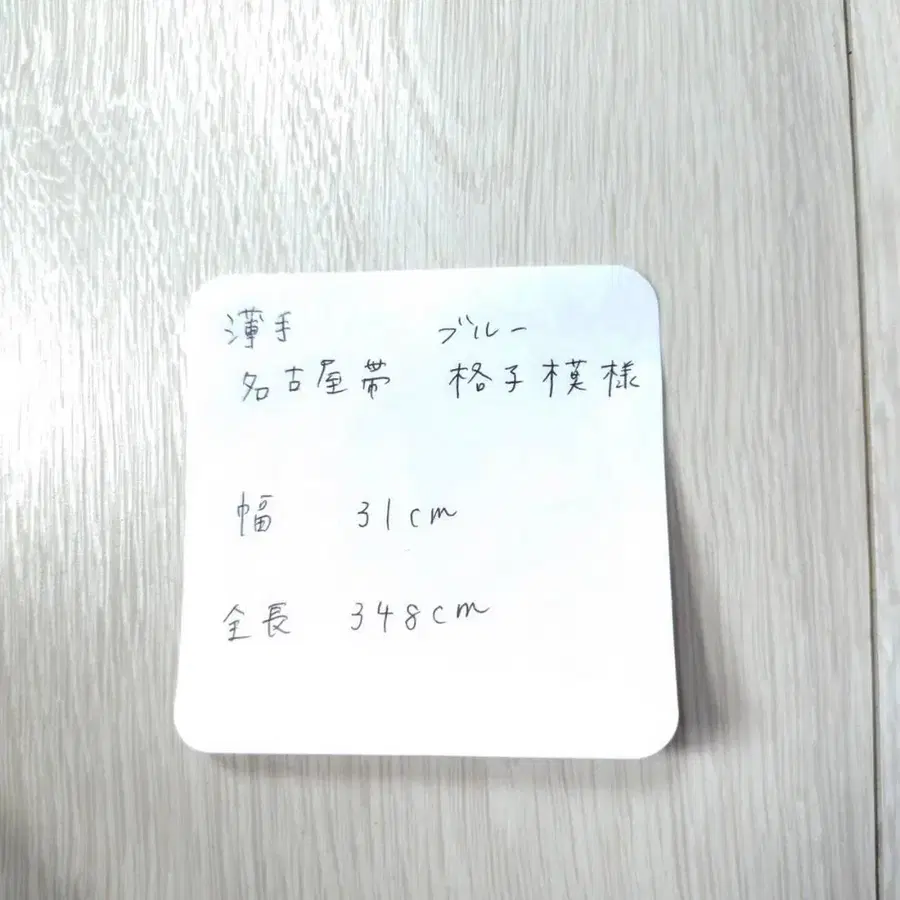 薄手 ブルー
名古屋帯 格子模様
幅 31cm
全長 348cm